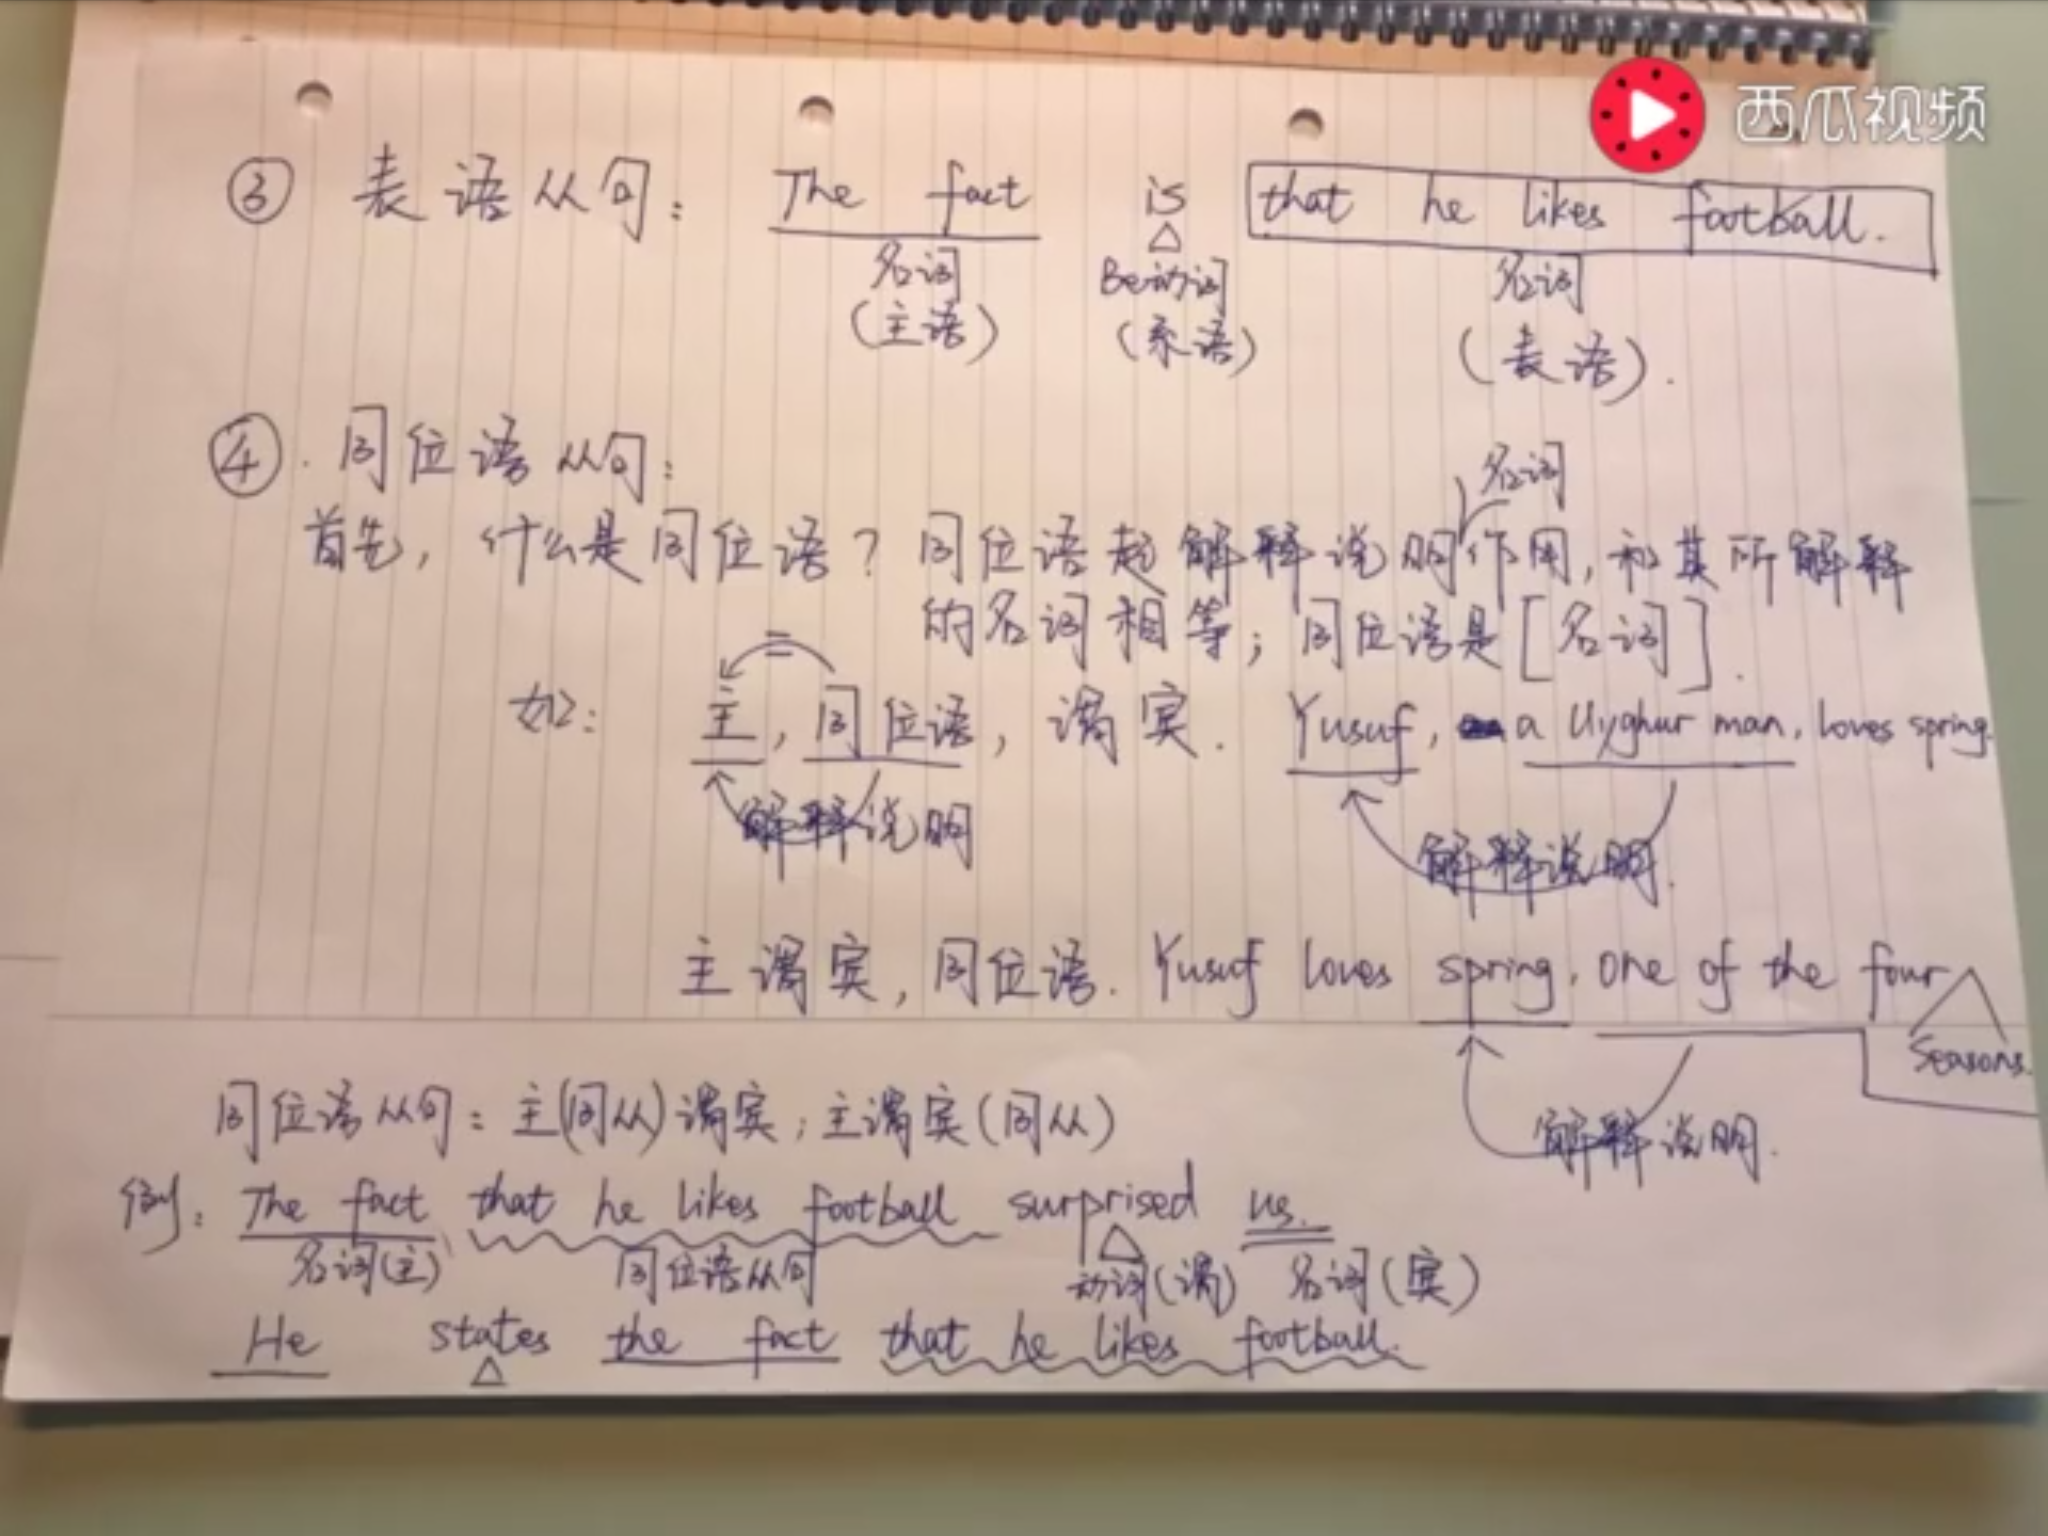 西瓜视频
③ 表语从句: The fact is that he likes football.
名词 Be动词 名词
(主语) (系语) (表语).
④. 同位语从句:
名词
首先, 什么是同位语? 同位语起解释说明作用, 和其所解释
的名词相等; 同位语是[名词].
=
如: 主, 同位语, 谓宾. Yusuf, a Uyghur man, loves spring.
解释说明 解释说明.
主谓宾, 同位语. Yusuf loves spring, one of the four
seasons.
解释说明.
同位语从句: 主(同从)谓宾; 主谓宾(同从)
例: The fact that he likes football surprised us.
名词(主) 同位语从句 动词(谓) 名词(宾)
He states the fact that he likes football.